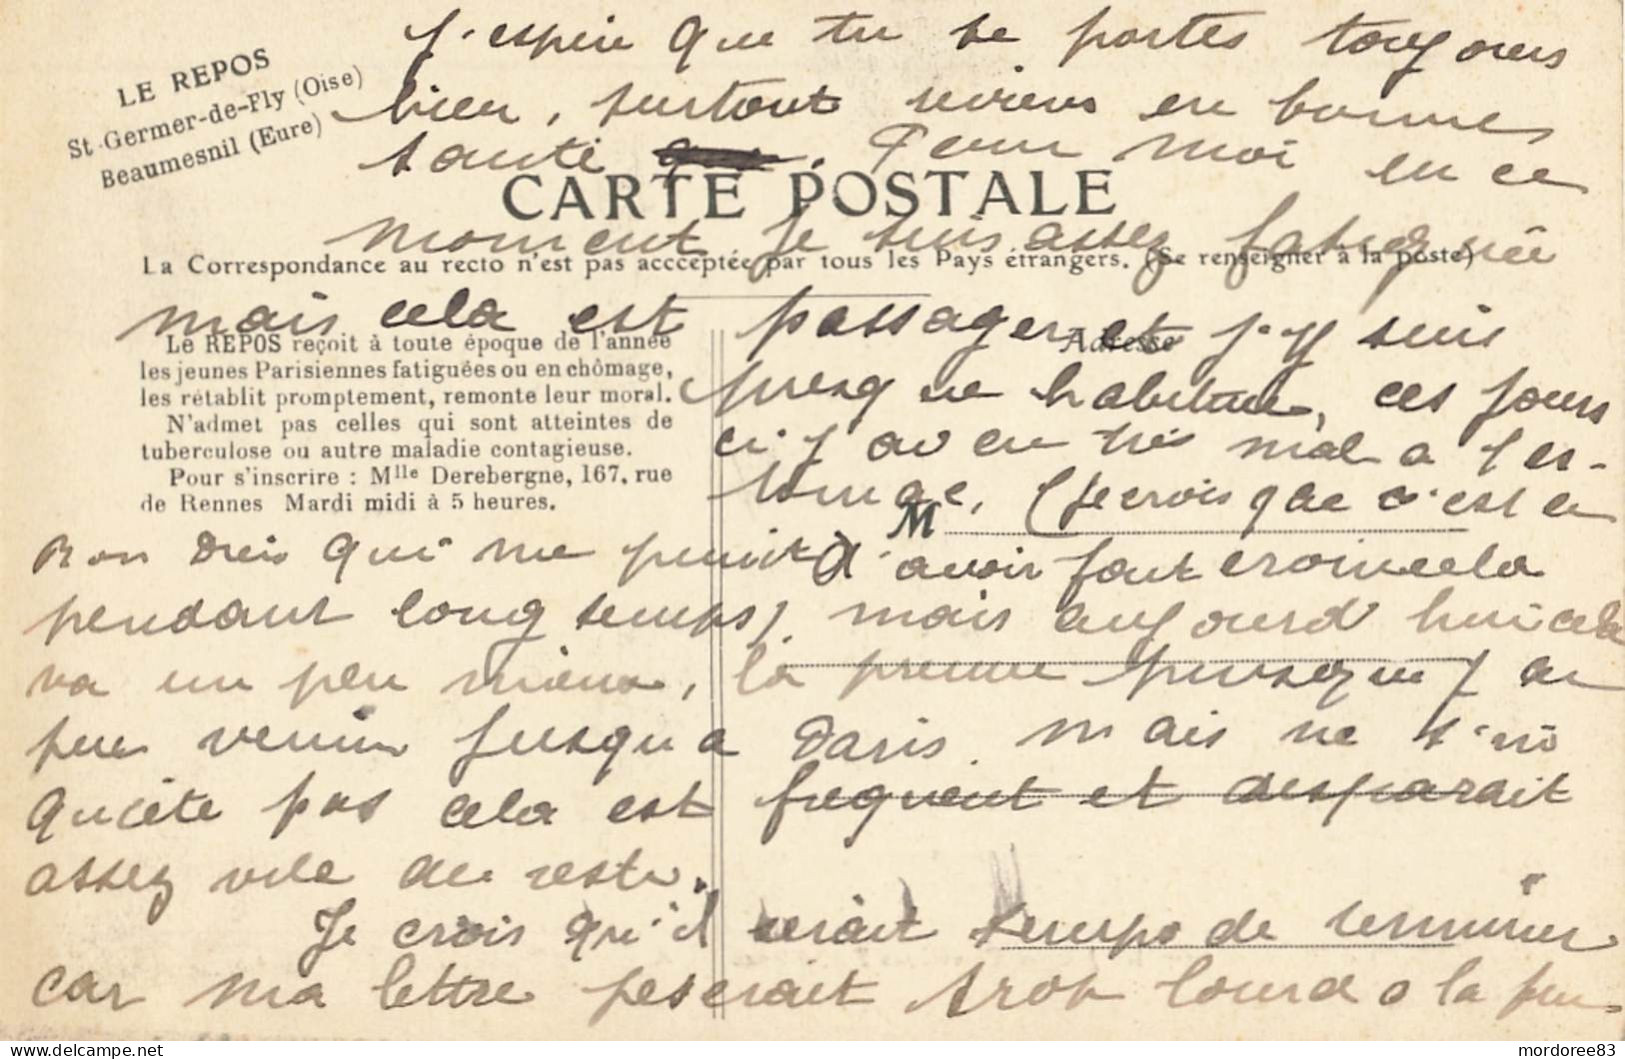 J'espère que tu te portes toujours
LE REPOS
St-Germer-de-Fly (Oise)
Beaumesnil (Eure)
bien, surtout reviens en bonnes
santé . Pour moi en ce
CARTE POSTALE
moment je suis assez fatiguée
La Correspondance au recto n'est pas accceptée par tous les Pays étrangers. (Se renseigner à la poste)
mais cela est passager et j'y suis
Adresse
Le REPOS reçoit à toute époque de l'année
les jeunes Parisiennes fatiguées ou en chômage,
les rétablit promptement, remonte leur moral.
N'admet pas celles qui sont atteintes de
tuberculose ou autre maladie contagieuse.
Pour s'inscrire : Mlle Derebergne, 167, rue
de Rennes Mardi midi à 5 heures.
presque habituée, ces jours
ci j'ai eu très mal a l'es-
tomac, (je crois que c'est le
M
Bon Dieu qui me punit d'avoir fait croire cela
pendant longtemps) mais aujourd'hui cela
va un peu mieux, la preuve puisque j'ai
pu venir jusqu'a Paris. mais ne t'in
quiète pas cela est frequent et desparait
assez vite du reste.
Je crois qu'il serait temps de terminer
car ma lettre peserait trop lourd a la fin
mordoree83